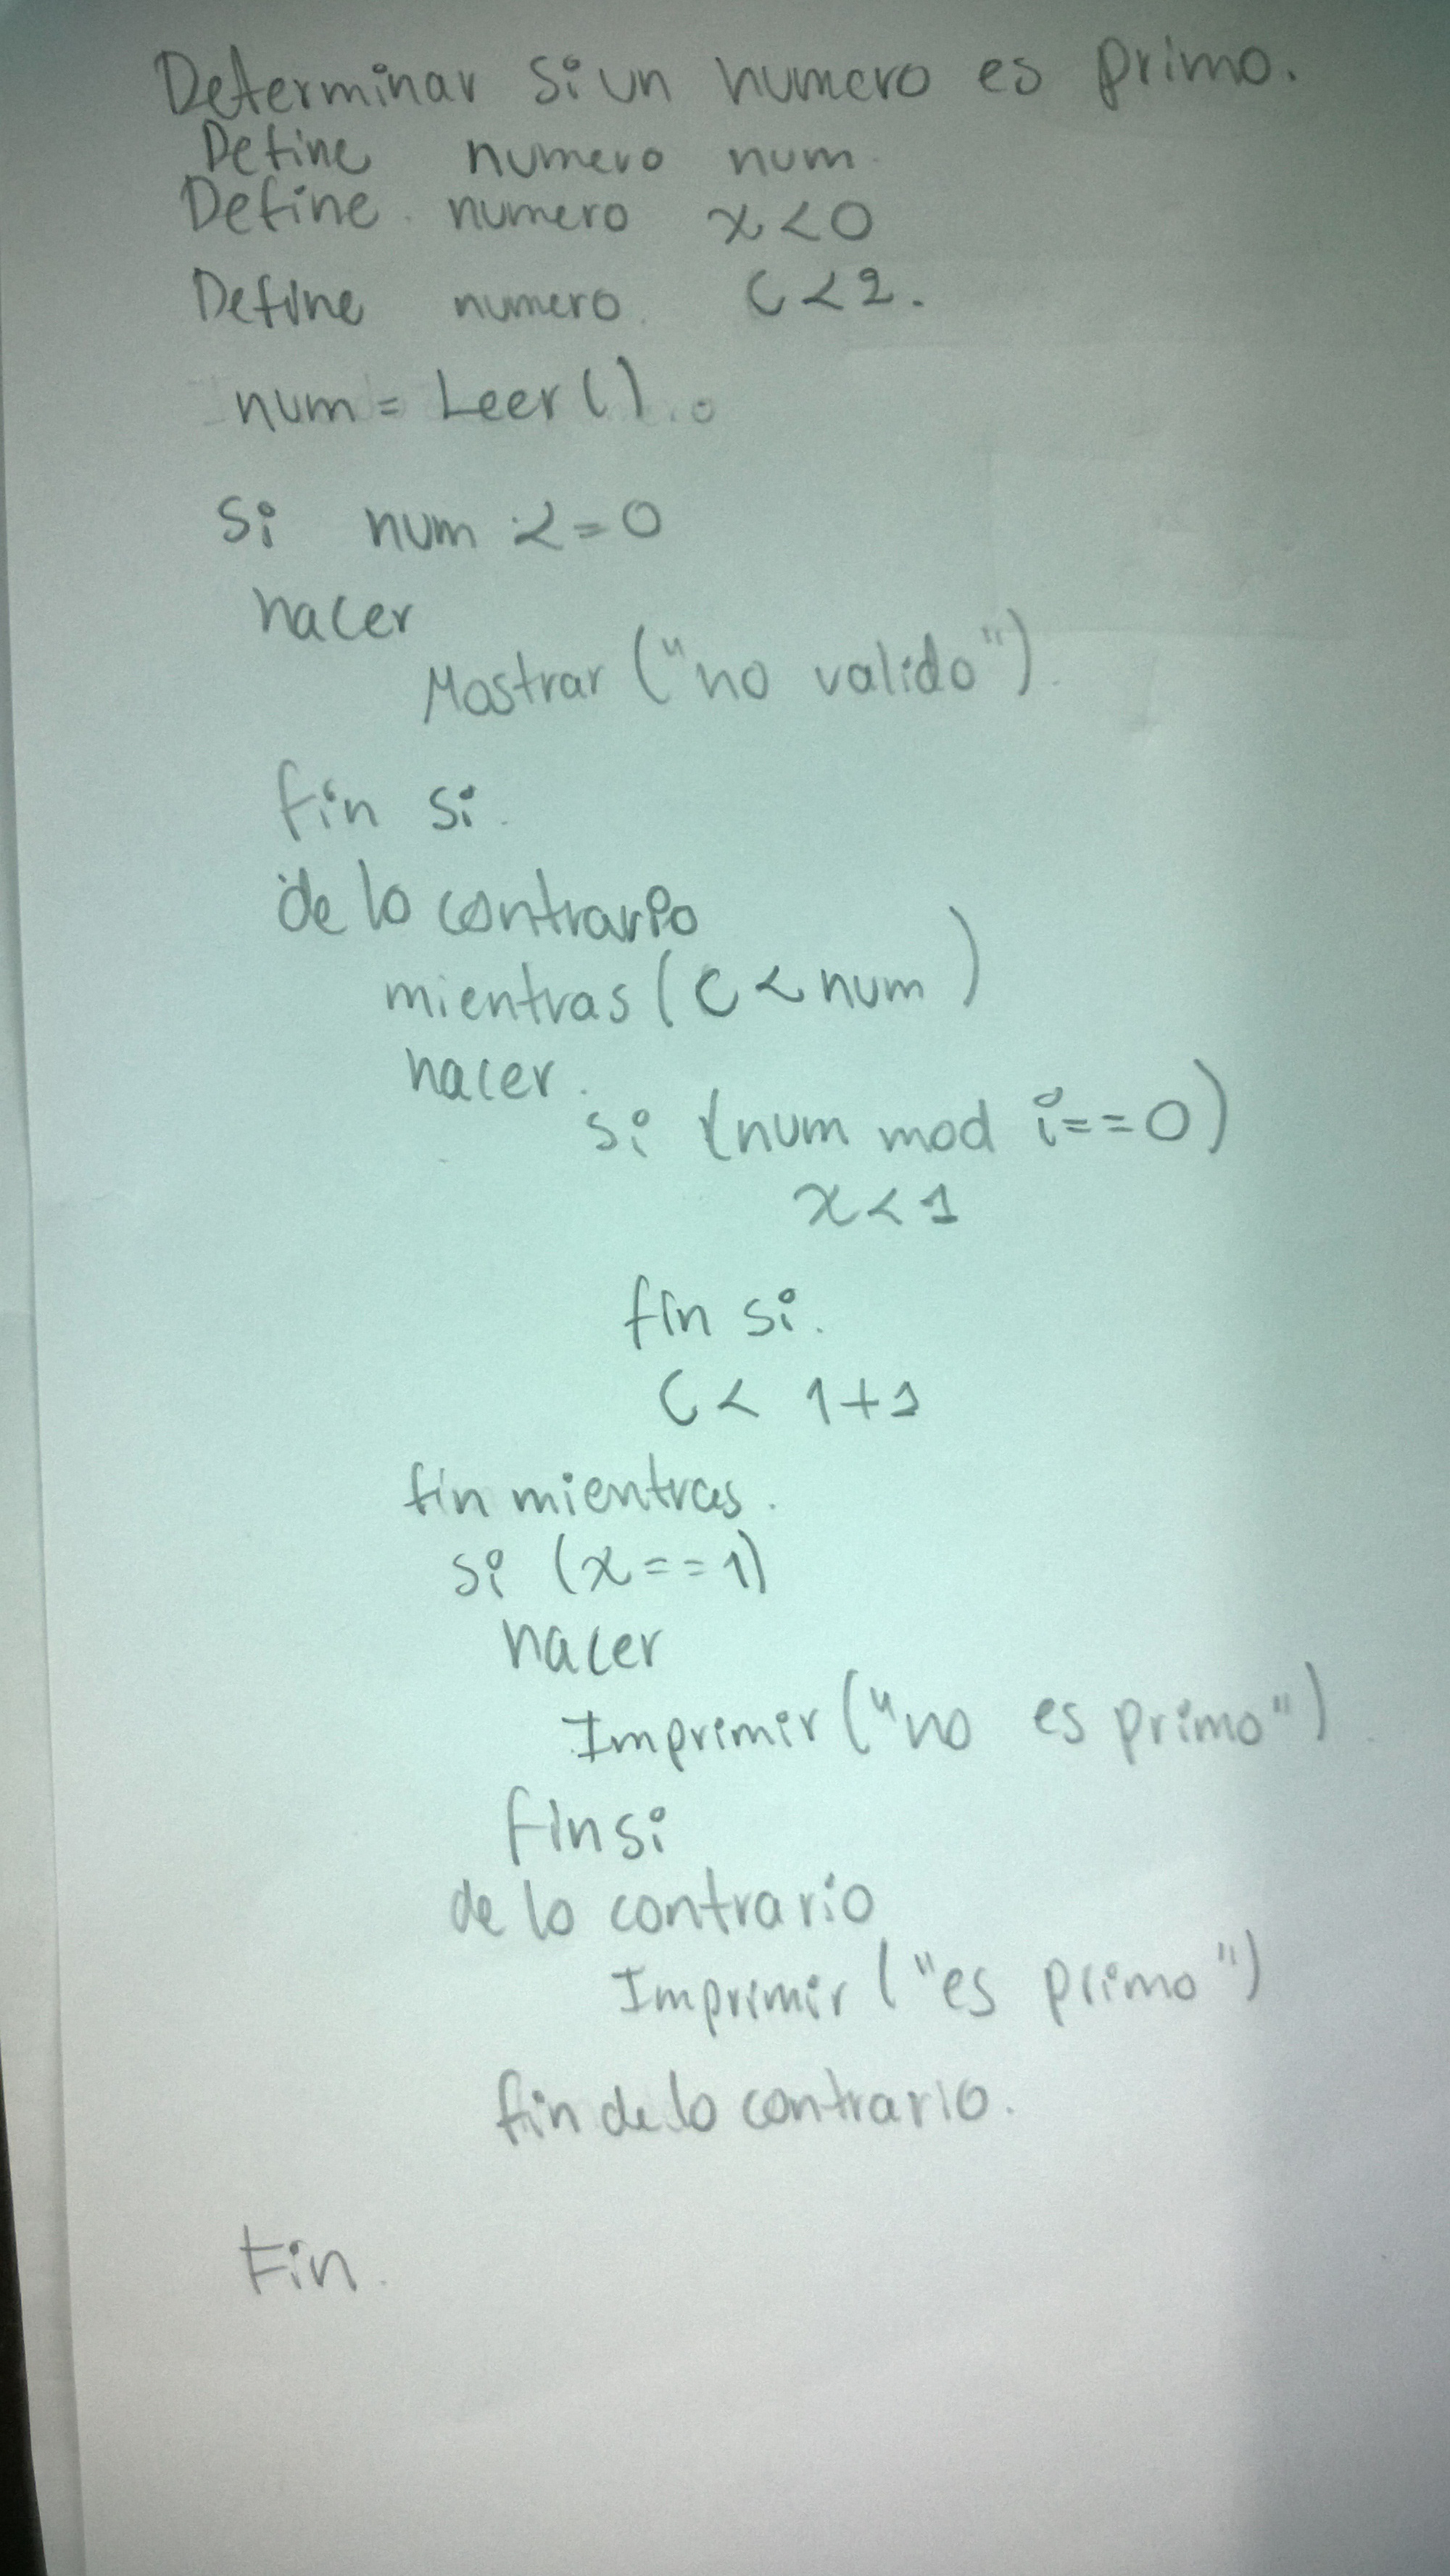 Determinar si un numero es primo.
Define numero num.
Define numero x<0
Define numero c<2.
num = Leer()
si num <=0
hacer
Mostrar ("no valido").
fin si.
de lo contrario
mientras (c < num)
hacer.
si (num mod i==0)
x<1
fin si.
c < 1+1
fin mientras.
si (x==1)
hacer
Imprimir ("no es primo")
fin si
de lo contrario
Imprimir ("es primo")
fin de lo contrario.
Fin.